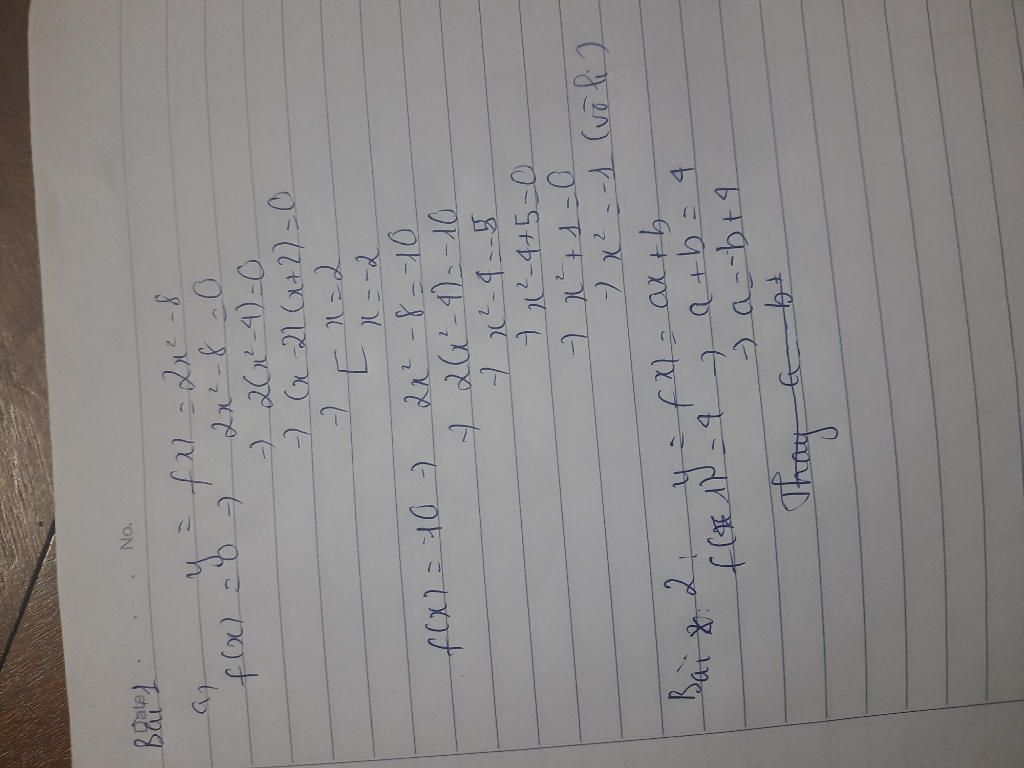 No.
Date
Bài 1
a, y = f(x) = 2x² - 8
f(x) = 0 → 2x² - 8 = 0
→ 2(x² - 4) = 0
→ (x - 2)(x + 2) = 0
→ [ x = 2
x = -2
f(x) = -10 → 2x² - 8 = -10
→ 2(x² - 4) = -10
→ x² - 4 = -5
→ x² - 4 + 5 = 0
→ x² + 1 = 0
→ x² = -1 (vô lí)
Bài 2: y = f(x) = ax + b
f(1) = 4 → a + b = 4
→ a = -b + 4
Thay a b +